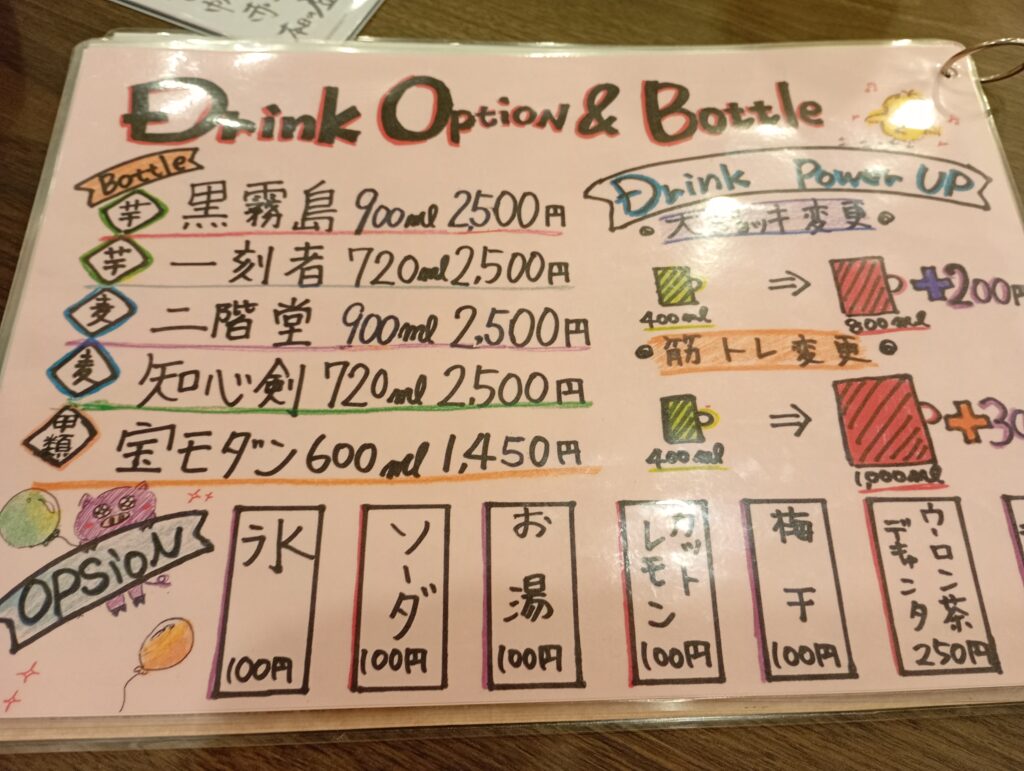 Drink Option & Bottle
Bottle
芋 黒霧島 900ml 2,500円
芋 一刻者 720ml 2,500円
麦 二階堂 900ml 2,500円
麦 知心剣 720ml 2,500円
甲類 宝モダン 600ml 1,450円
Drink Power UP
大ジョッキ変更
400ml ⇒ 800ml +200円
筋トレ変更
400ml ⇒ 1,000ml +30
OPSiON
氷 100円
ソーダ 100円
お湯 100円
カットレモン 100円
梅干 100円
ウーロン茶デキャンタ 250円